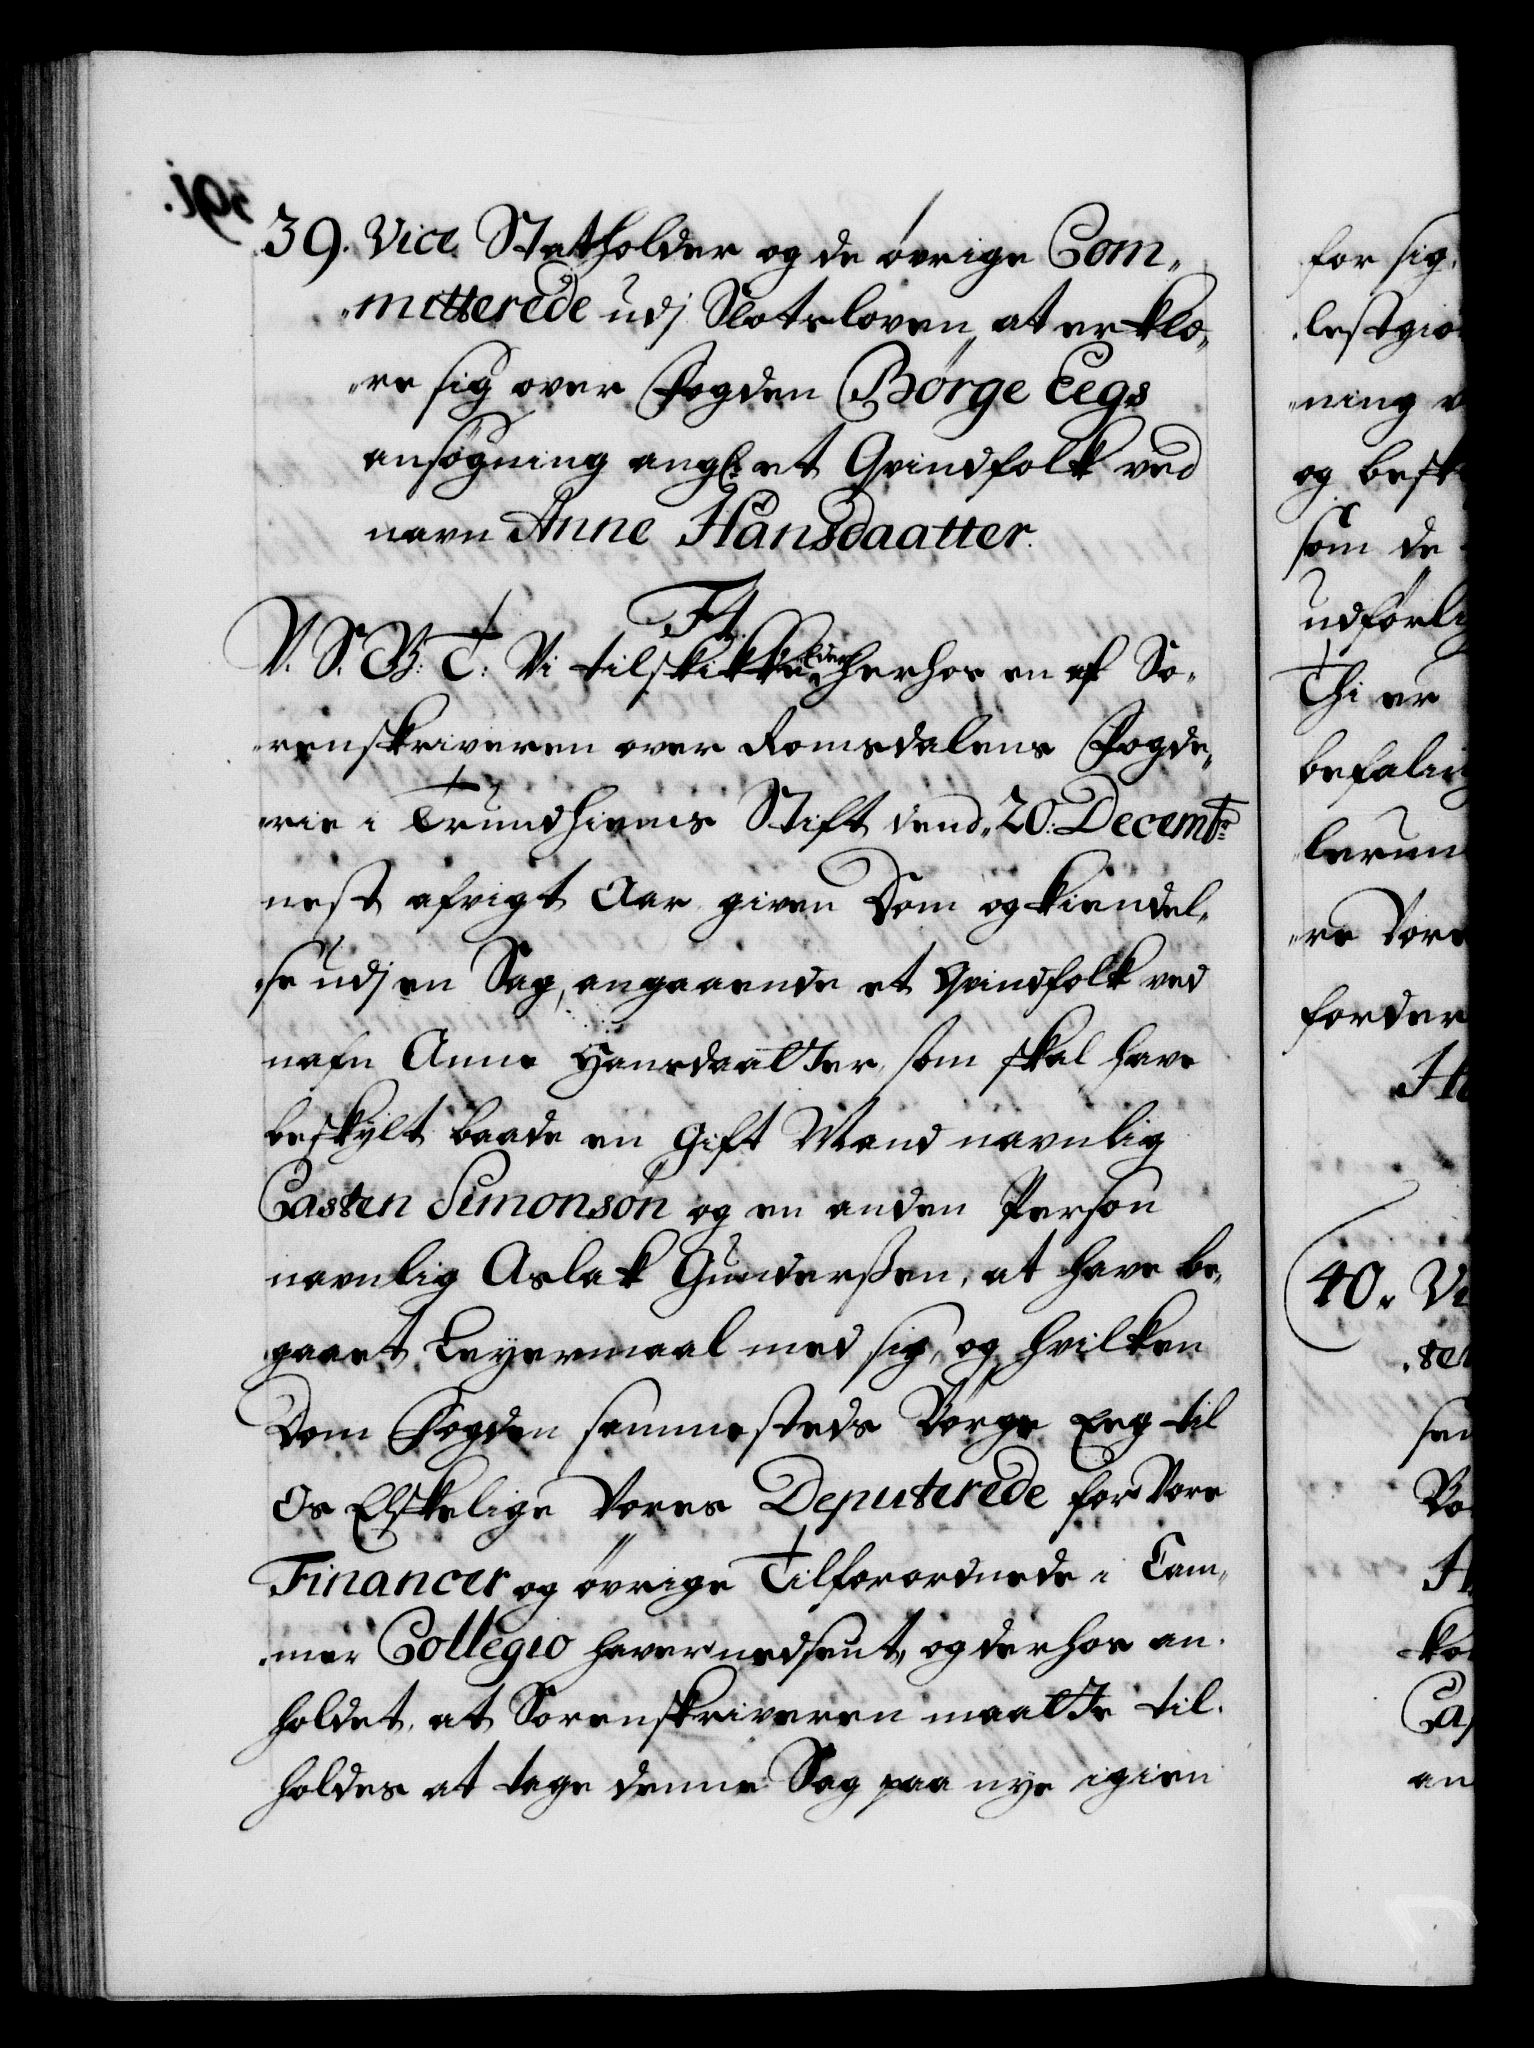 39. Vice Statholder og de øvrige Com„
„mitterede udj Slotsloven, at erklæ„
„re sig over Fogden Børge Eegs
ansøgning angl: et Qvindfolk ved
navn Anne Hansdaatter.
F4.
V. S. G. T: Vi tilskikke Eder herhos en af So„
„renskriveren over Romsdalens Fogde„
„rie i Trundhiems Stift dend 20: Decembr:
nest afvigt Aar given Dom og kiendel„
„se udj en Sag, angaaende et Qvindfolk ved
nafn Anne Hansdaatter, som skal have
beskylt baade en gift Mand navnlig
Casten Simonsøn og en anden Person
navnlig Aslak Gunderssen, at have be„
gaaet Leyermaal med sig, og hvilken
Dom Fogden sammesteds Børge Eeg til
Os Elskelige Vores Deputerede for Vore
Financer og øvrige Tilforordnede i Cam„
„mer Collegio haver nedsent, og derhos an„
holdet, at Sorenskriveren maatte til„
holdes at tage denne Sag paa nye igien
for sig,
og besk
som de
udførlig
Thi er
befalin
„re Vore
forder
40. Vi